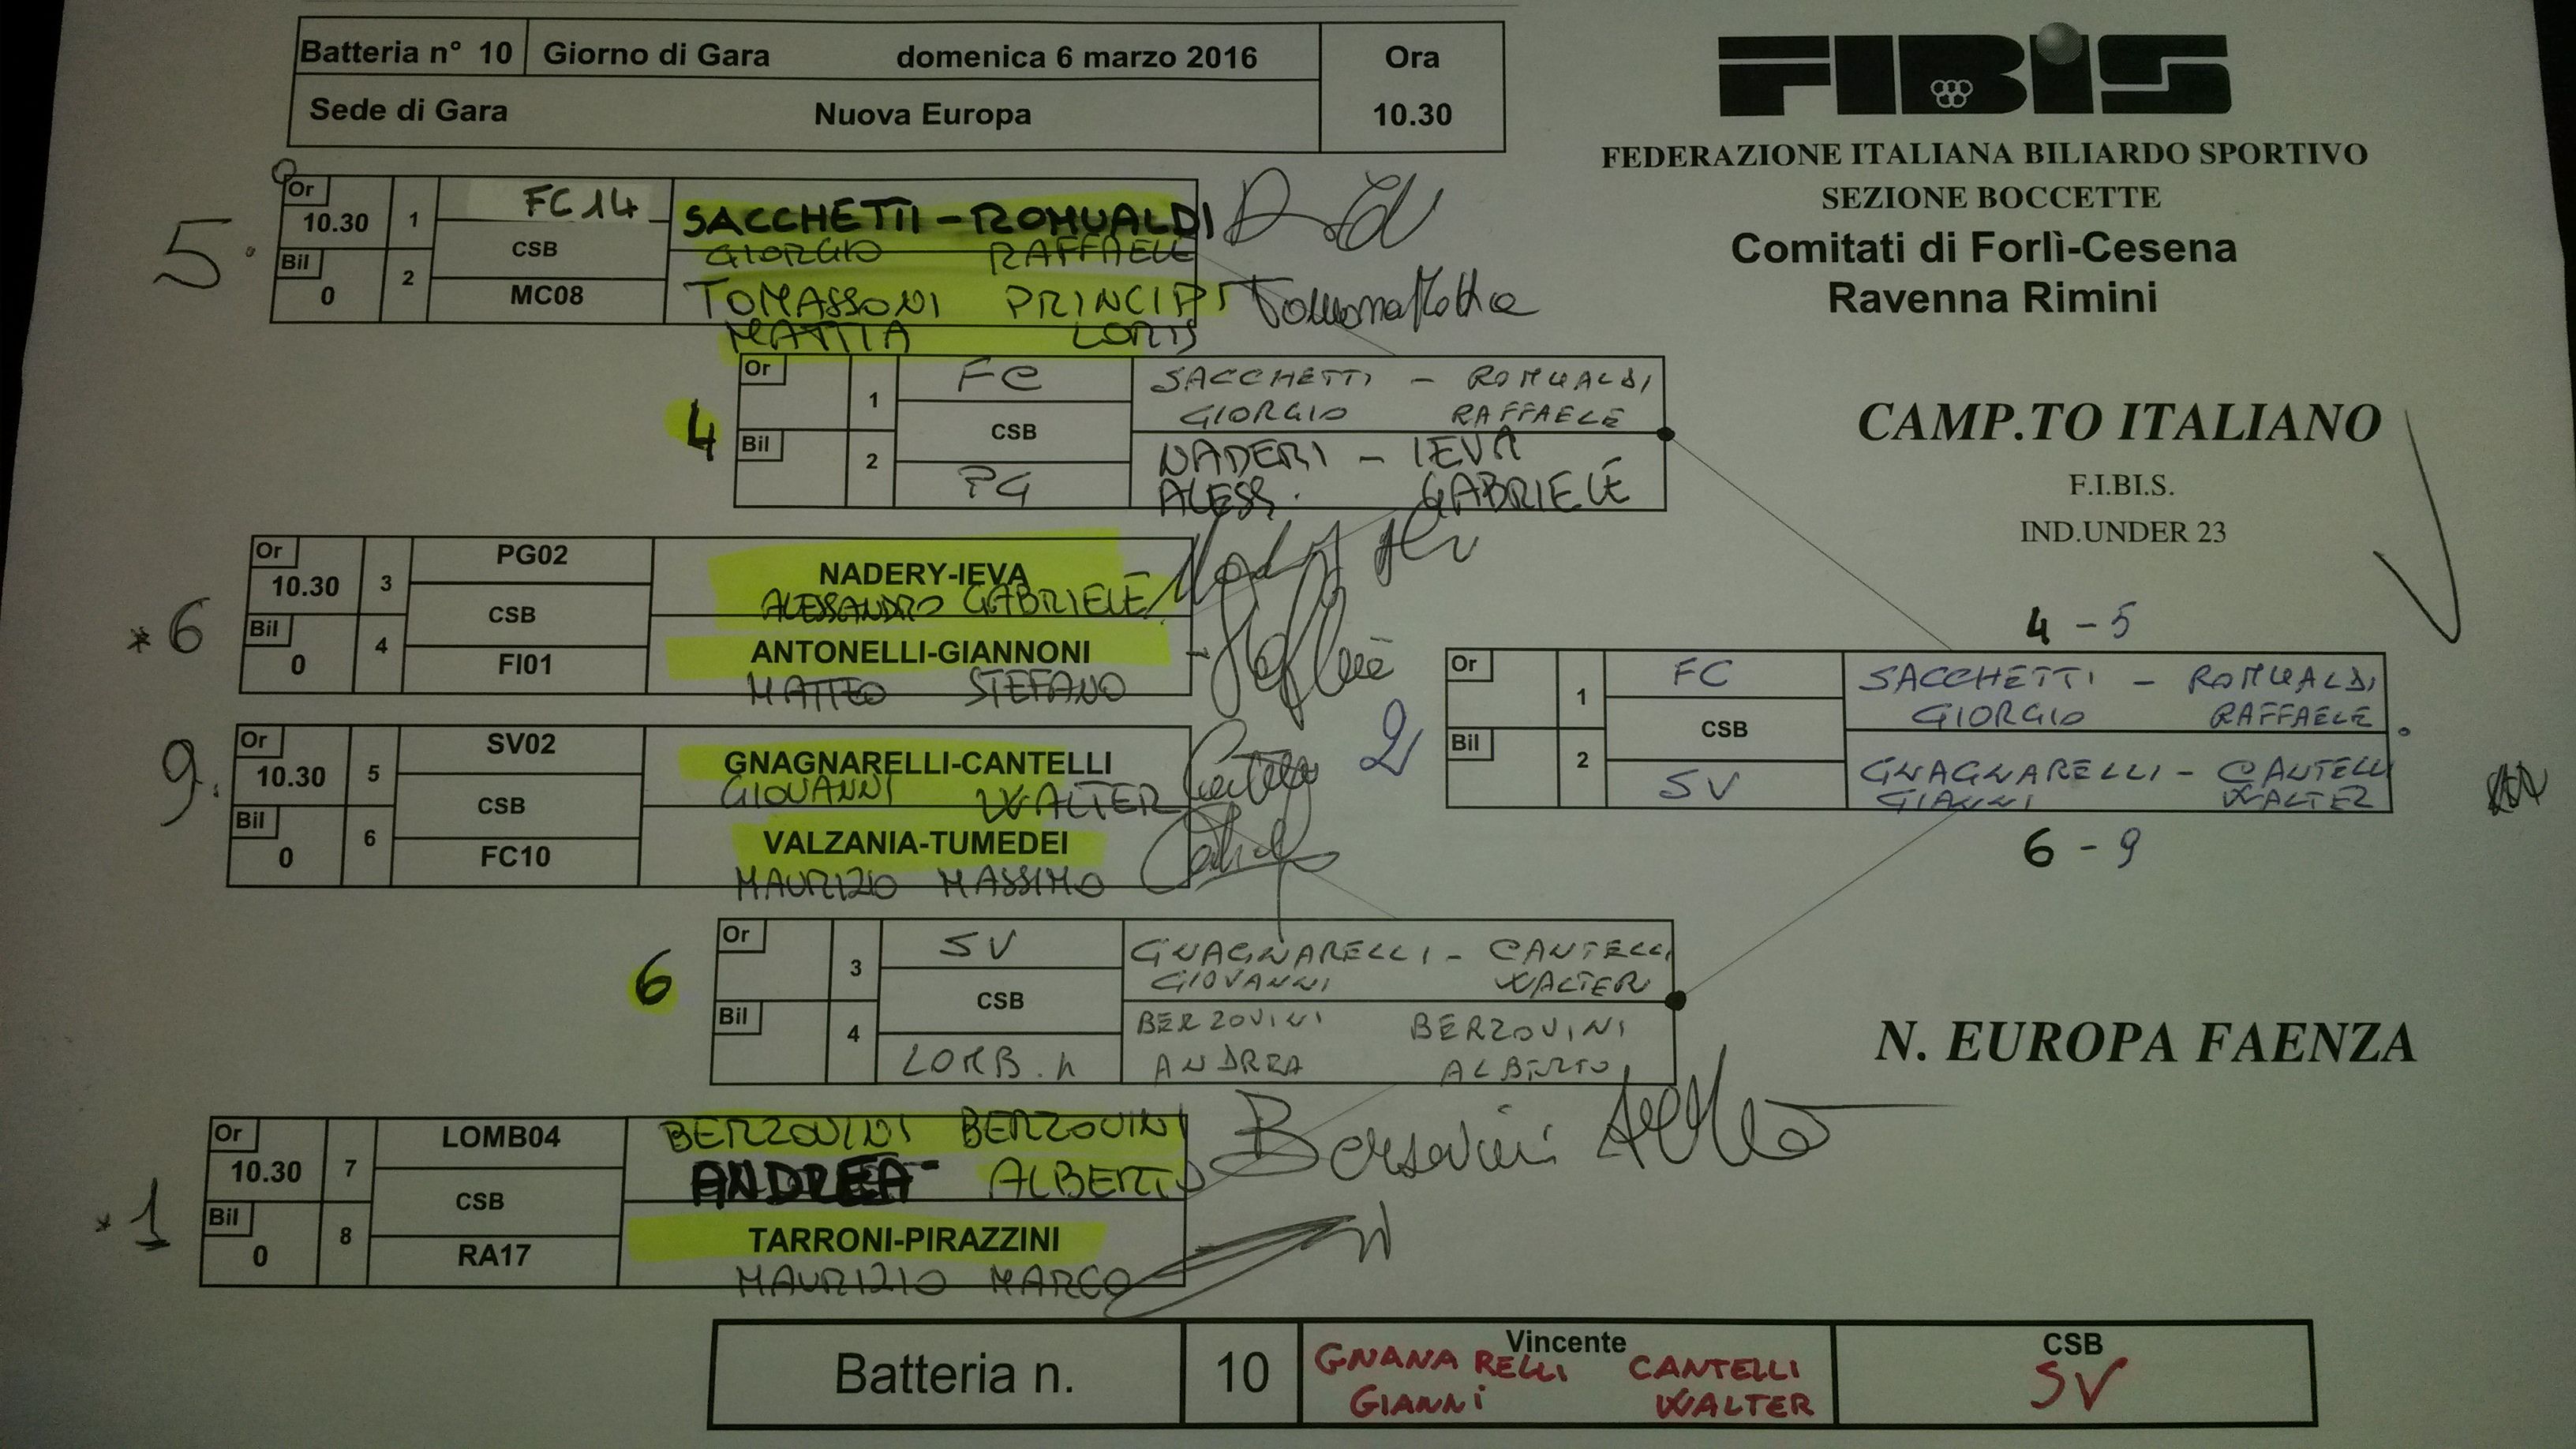 Batteria n° 10 Giorno di Gara domenica 6 marzo 2016 Ora
Sede di Gara Nuova Europa 10.30
FIBiS
FEDERAZIONE ITALIANA BILIARDO SPORTIVO
SEZIONE BOCCETTE
Comitati di Forlì-Cesena
Ravenna Rimini
CAMP.TO ITALIANO
F.I.BI.S.
IND.UNDER 23
5.
Or 10.30 1 FC14 SACCHETTI - ROMUALDI
CSB GIORGIO RAFFAELE
Bil 0 2 MC08 TOMASSONI PRINCIPI
MATTIA LORIS
4
Or 1 FC SACCHETTI - ROMUALDI
GIORGIO RAFFAELE
CSB
Bil 2 PG NADERI - IEVA
ALESS. GABRIELE
* 6
Or 10.30 3 PG02 NADERY-IEVA
CSB ALESSANDRO GABRIELE
Bil 0 4 FI01 ANTONELLI-GIANNONI
MATTEO STEFANO
4 - 5
2
Or 1 FC SACCHETTI - ROMUALDI
GIORGIO RAFFAELE
CSB
Bil 2 SV GNAGNARELLI - CANTELLI
GIANNI WALTER
6 - 9
9.
Or 10.30 5 SV02 GNAGNARELLI-CANTELLI
CSB GIOVANNI WALTER
Bil 0 6 FC10 VALZANIA-TUMEDEI
MAURIZIO MASSIMO
6
Or 3 SV GNAGNARELLI - CANTELLI
GIOVANNI WALTER
CSB
Bil 4 LOMB. BERZOVINI BERZOVINI
ANDREA ALBERTO
N. EUROPA FAENZA
* 1
Or 10.30 7 LOMB04 BERZOVINI BERZOVINI
CSB ANDREA- ALBERTO
Bil 0 8 RA17 TARRONI-PIRAZZINI
MAURIZIO MARCO
Batteria n. 10 Vincente CSB
GNANARELLI CANTELLI SV
GIANNi WALTER